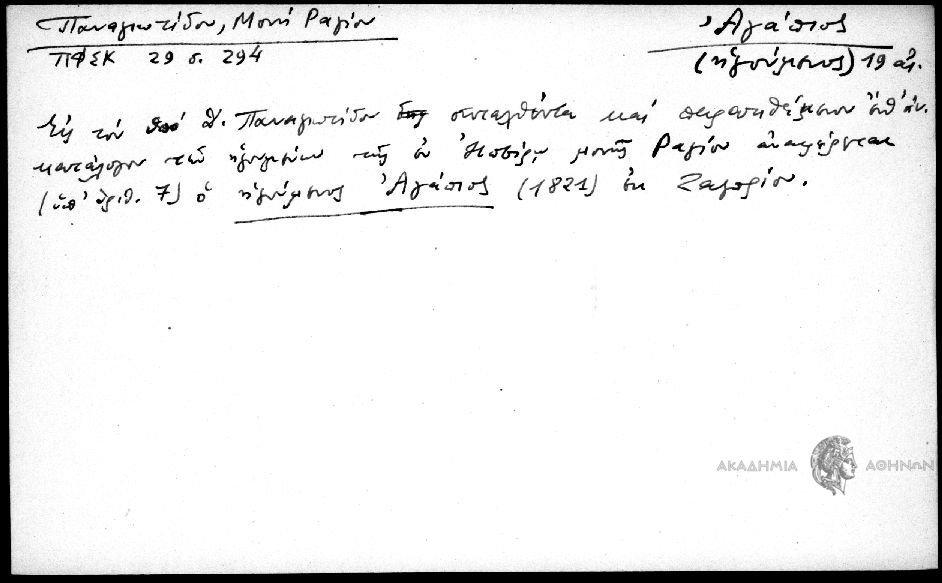 Παναγιωτίδου, Μονή Ραγίου
ΠΦΣΚ 29 σ. 294
Ἀγάπιος
(ἡγούμενος) 19 αἰ.
Εἰς τόν ὑπό Δ. Παναγιωτίδου συνταχθέντα καί παρατιθέμενον
κατάλογον τῶν ἡγουμένων τῆς ἐν Ἠπείρῳ μονῆς Ραγίου ἀναφέρεται
(ὑπ' ἀριθ. 7) ὁ ἡγούμενος Ἀγάπιος (1821) ἐκ Ζαγορίου.
ΑΚΑΔΗΜΙΑ ΑΘΗΝΩΝ